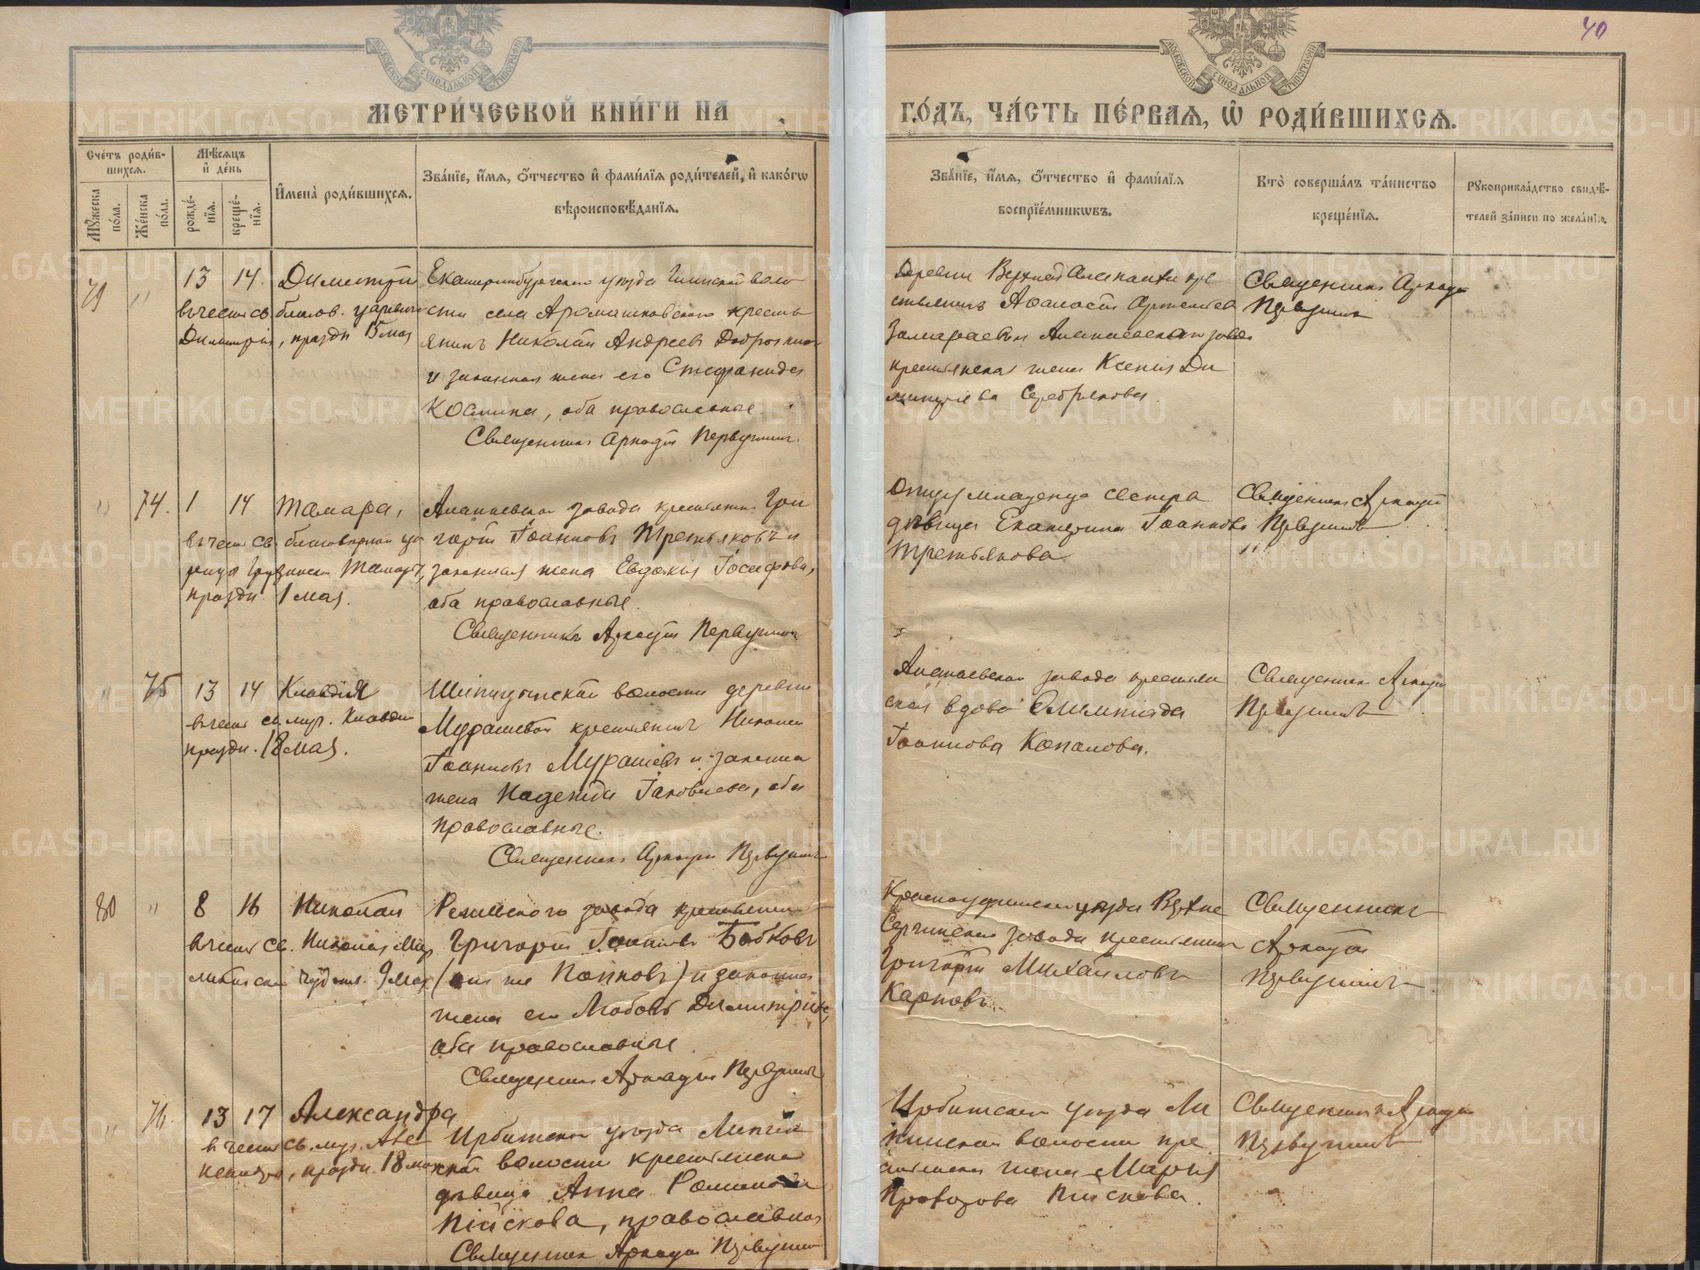 40
МОСКОВСКОЙ СѴНОДАЛЬНОЙ ТИПОГРАФІИ
МОСКОВСКОЙ СѴНОДАЛЬНОЙ ТИПОГРАФІИ
МЕТРИ́ЧЕСКОЙ КНИ́ГИ НА
ГО́ДЪ, ЧА́СТЬ ПЕ́РВАЯ, Ѡ҆ РОДИ́ВШИХСЯ.
Сче́тъ роди́в-
шихся.
Мꙋ́жеска по́ла.
Же́нска по́ла.
Мѣ́сяцъ
и҆ де́нь
рожде́-
нїя.
креще́-
нїя.
И҆мена̀ роди́вшихся.
Зва́нїе, и҆́мя, ѻ҆́тчество и҆ фами́лїя роди́телей, и҆ како́гѡ
вѣроисповѣ́данїя.
Зва́нїе, и҆́мя, ѻ҆́тчество и҆ фами́лїя
воспрїе́мникѡвъ.
Кто̀ соверша́лъ та́инство
креще́нїя.
Рꙋкоприкла́дство свидѣ́-
телей за́писи по жела́нїю.
79 " 13 14 Димитрій
въ честь св. благов. царевич
Димитрія, праздн 15 мая
Екатеринбургскаго уѣзда воло
сти села Арамашковскаго кресть
янинъ Николай Андреевъ
и законная жена его Стефанида
Космина, оба православные.
Священникъ Аркадій Первушинъ
Деревни Верхней Алапаихи кре
Аѳанасій Артемьев
Алапаевскаго завода
крестьянская жена Ксенія Ди
митріева Серебрякова.
Священникъ Аркадій
Первушинъ
" 74. 1 14 Тамара,
въ честь св. благовѣрной ца
рицы Грузинской Тамары,
праздн 1 мая.
Алапаевскаго завода крестьянинъ Гри
горій Іоанновъ Третьяковъ и
законная жена Евдокія Іосифова,
оба православные.
Священникъ Аркадій Первушинъ
Отцу младенца сестра
дѣвица Екатерина Іоаннова
Третьякова
Священникъ Аркадій
Первушинъ
" 75 13 14 Клавдія
въ честь св. мур. Клавдіи
праздн. 18 мая.
волости деревни
Мурашевой крестьянинъ Николай
Іоанновъ Мурашевъ и законная
жена Надежда Іаковлева, оба
православные.
Священникъ Аркадій Первушинъ
Алапаевскаго завода крестьян
ская вдова Олимпіада
Іоаннова Копалова.
Священникъ Аркадій
Первушинъ
80 " 8 16 Николай
въ честь св. Николая Мир
ликійскаго чудотв. 9 мая
Режевского завода крестьянинъ
Григорій Іоанновъ Бобковъ
(онъ же Попковъ) и законная
жена его Любовь Димитріева,
оба православные
Священникъ Аркадій Первушинъ
Красноуфимскаго уѣзда Верхне
Сергинскаго завода крестьянинъ
Григорій Михайловъ
Карповъ.
Священникъ
Аркадій
Первушинъ
" 76. 13 17 Александра
въ честь св. муч. Але
ксандры, праздн. 18 мая
Ирбитскаго уѣзда
ской волости крестьянская
дѣвица Анна Романова
Пійскова, православная
Священникъ Аркадій Первушинъ
Ирбитскаго уѣзда
волости кре
стьянская жена Марія
Священникъ Аркадій
Первушинъ
METRIKI.GASO-URAL.RU